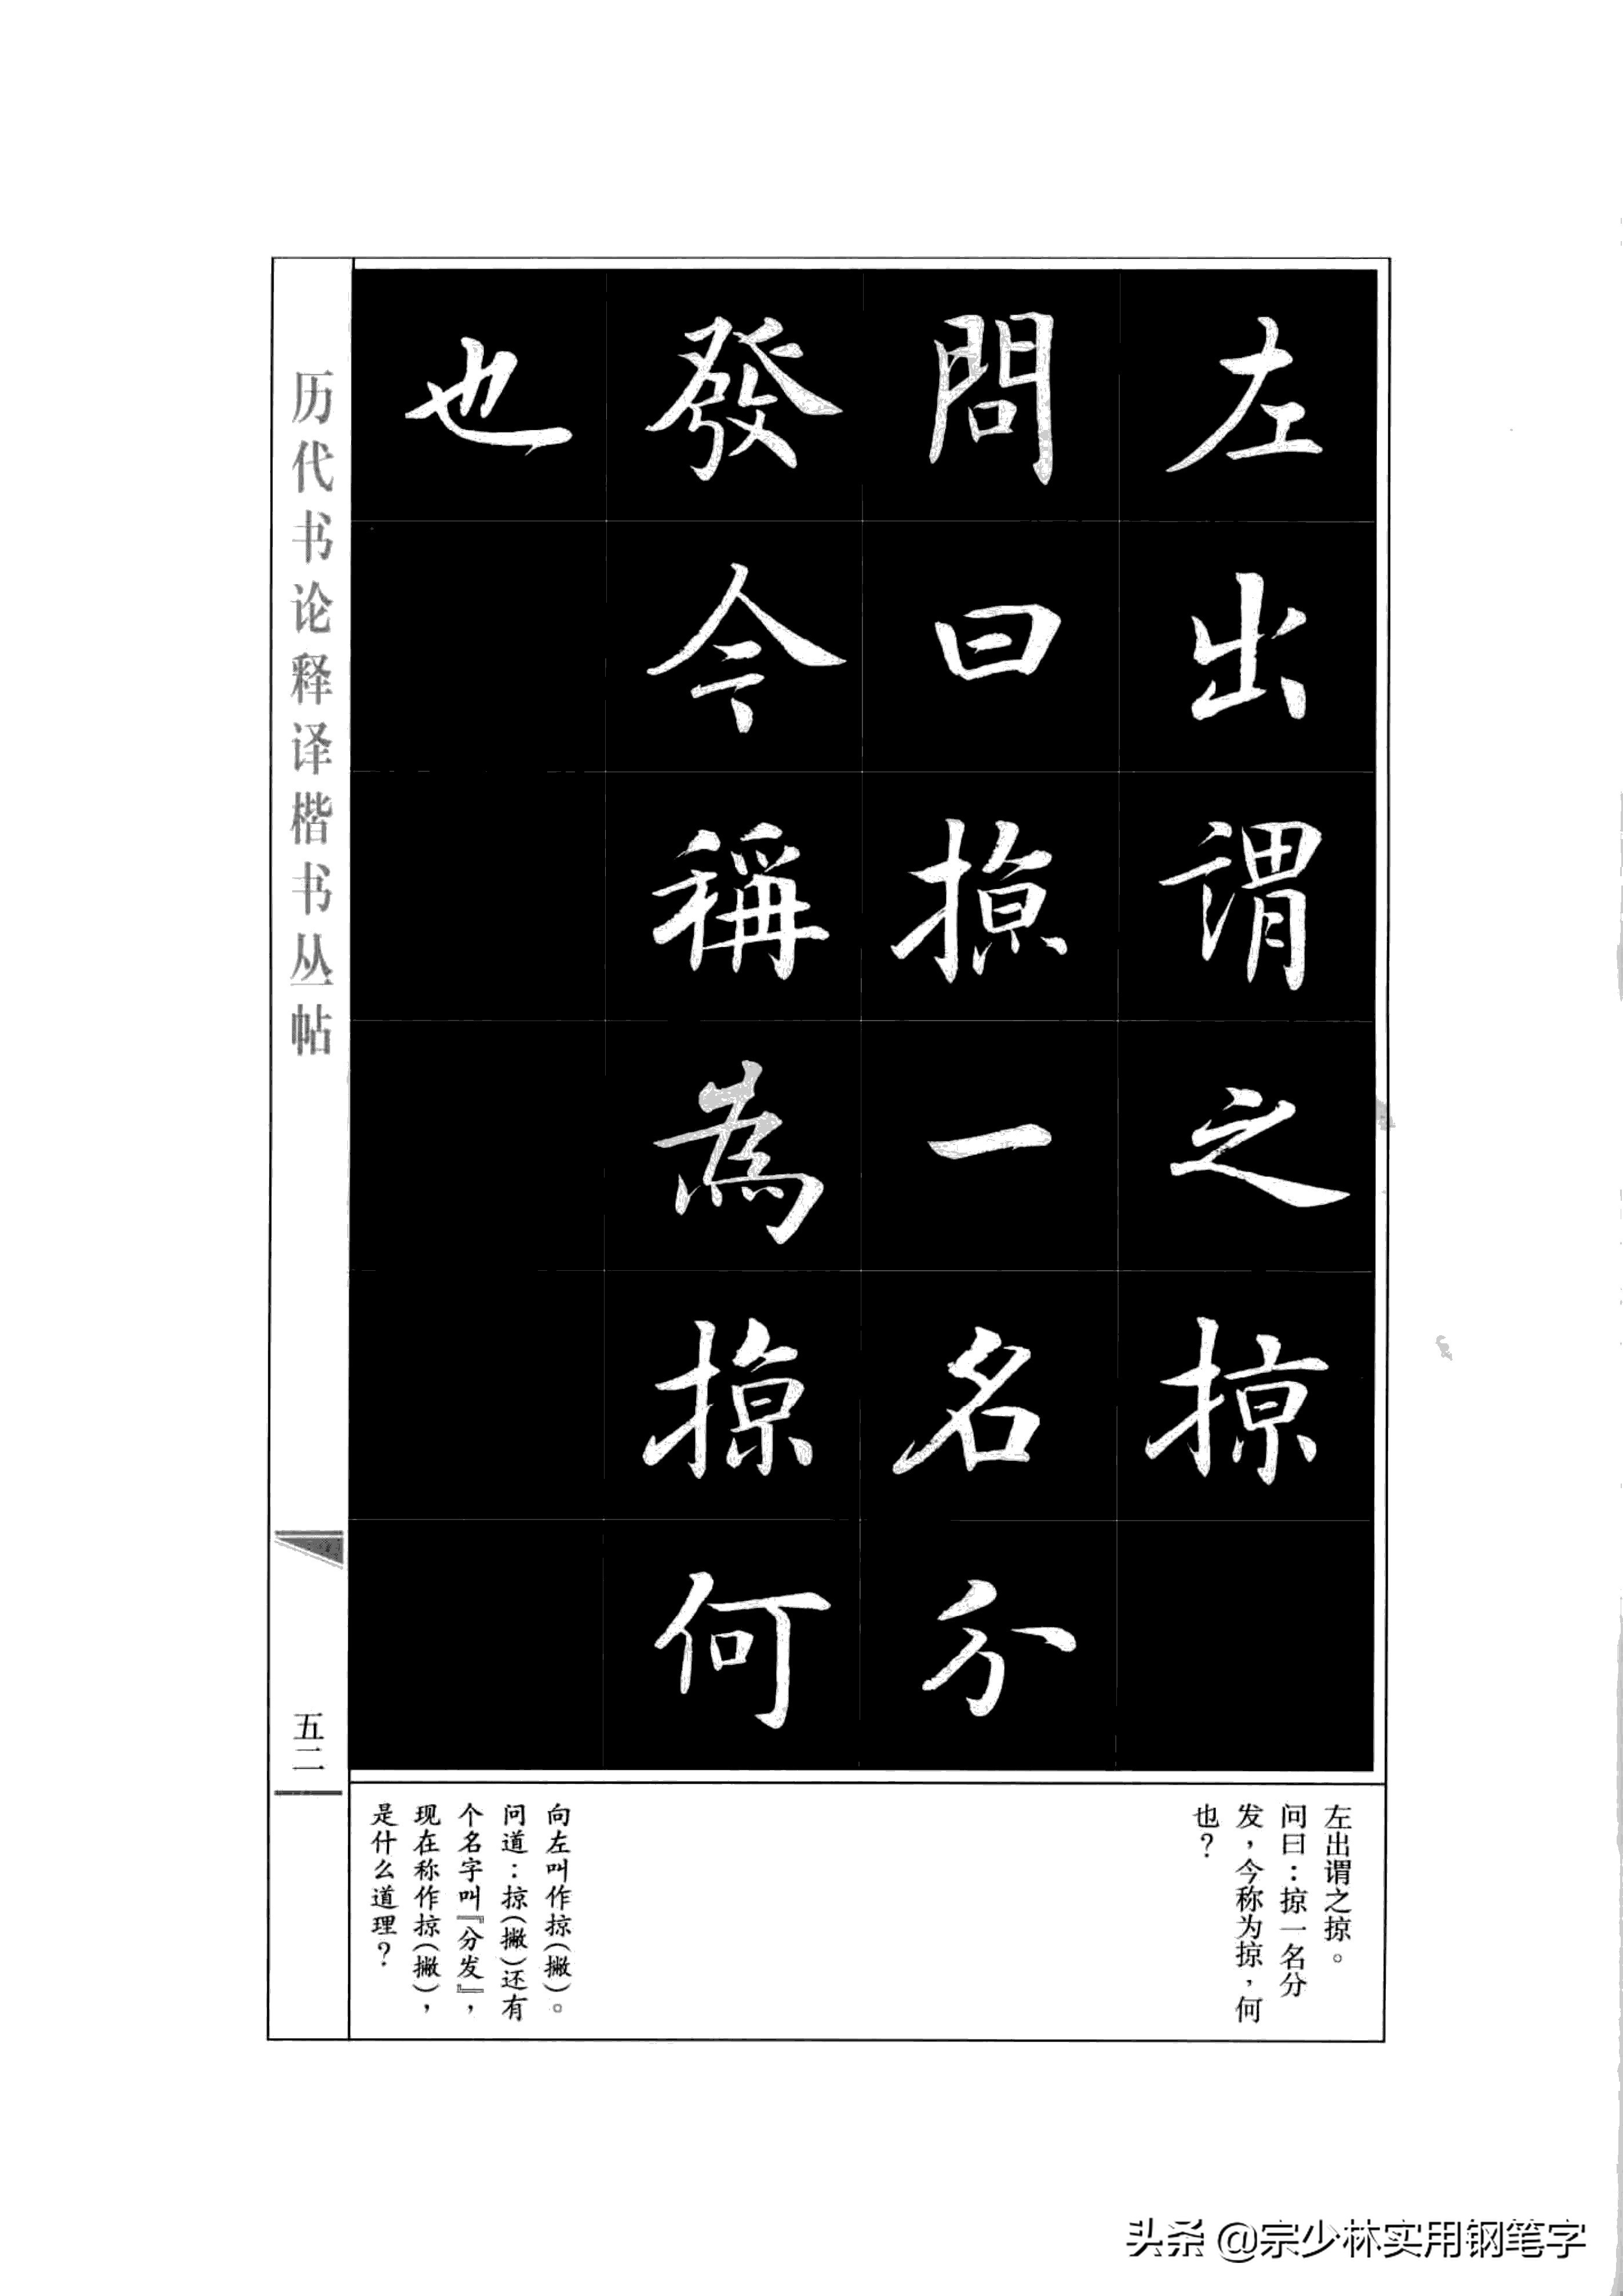 左出謂之掠
問曰掠一名分
發今稱為掠何
也
左出谓之掠。
问曰：掠一名分
发，今称为掠，何
也？
向左叫作掠（撇）。
问道：掠（撇）还有
个名字叫『分发』，
现在称作掠（撇），
是什么道理？
历代书论释译楷书丛帖
五二
头条 @宗少林实用钢笔字